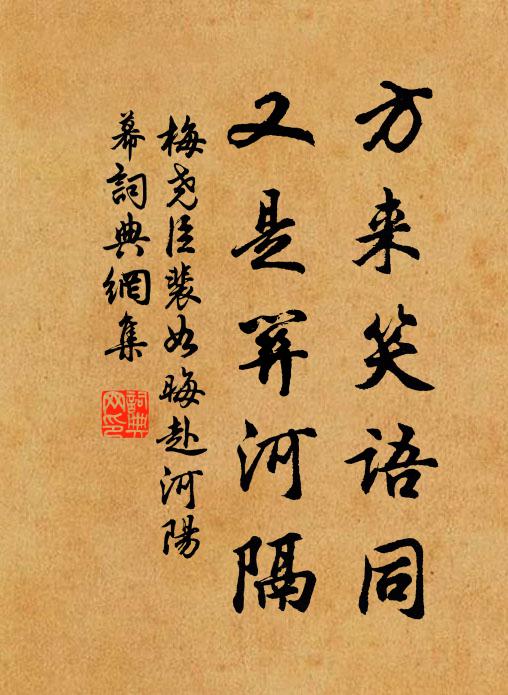 方来笑语同
又是羿河隔
梅尧臣裴如晦赴河陽
幕詞典網集
詞典
网印